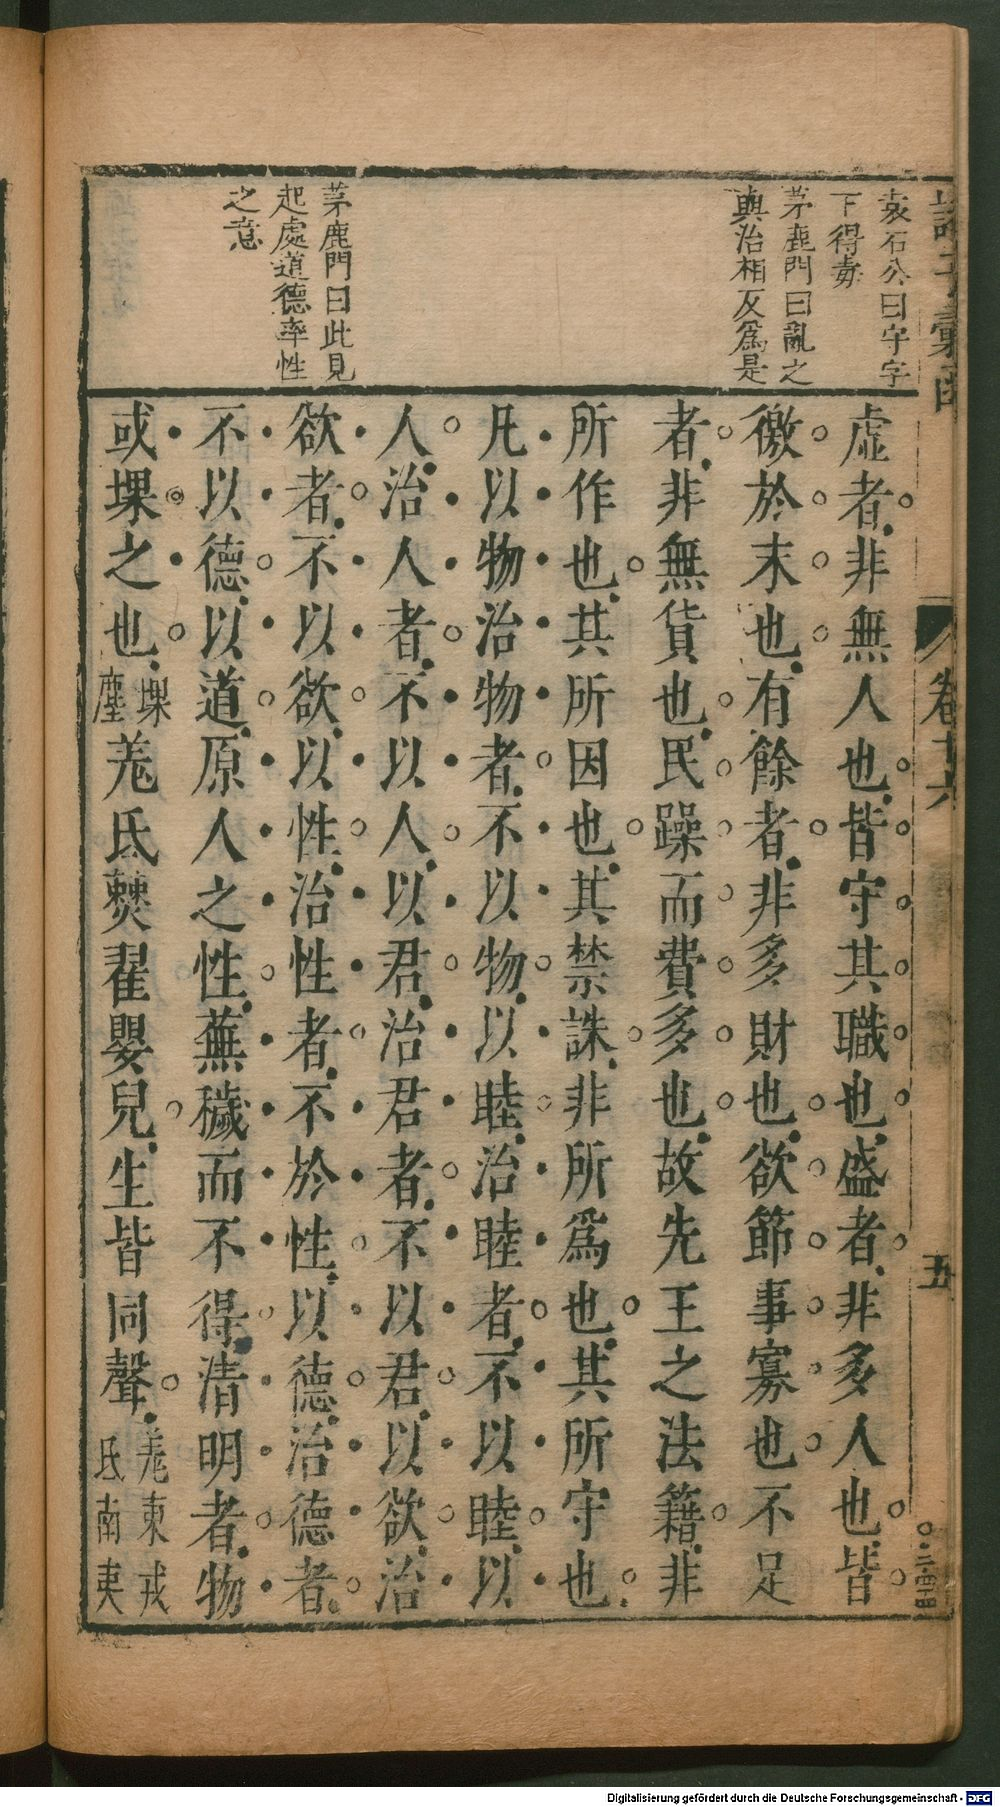 袁石公曰守字
下得妙
茅鹿門曰亂之
與治相反爲是
茅鹿門曰此見
起處道德率性
之意
虛者非無人也皆守其職也盛者非多人也皆
徼於末也有餘者非多財也欲節事寡也不足
者非無貨也民躁而費多也故先王之法籍非
所作也其所因也其禁誅非所爲也其所守也
凡以物治物者不以物以睦治睦者不以睦以
人治人者不以人以君治君者不以君以欲治
欲者不以欲以性治性者不於性以德治德者
不以德以道原人之性蕪穢而不得清明者物
或堁之也堁塵羗氐僰翟嬰兒生皆同聲羗東戎氐南夷
卷十六
五
Digitalisierung gefördert durch die Deutsche Forschungsgemeinschaft - DFG